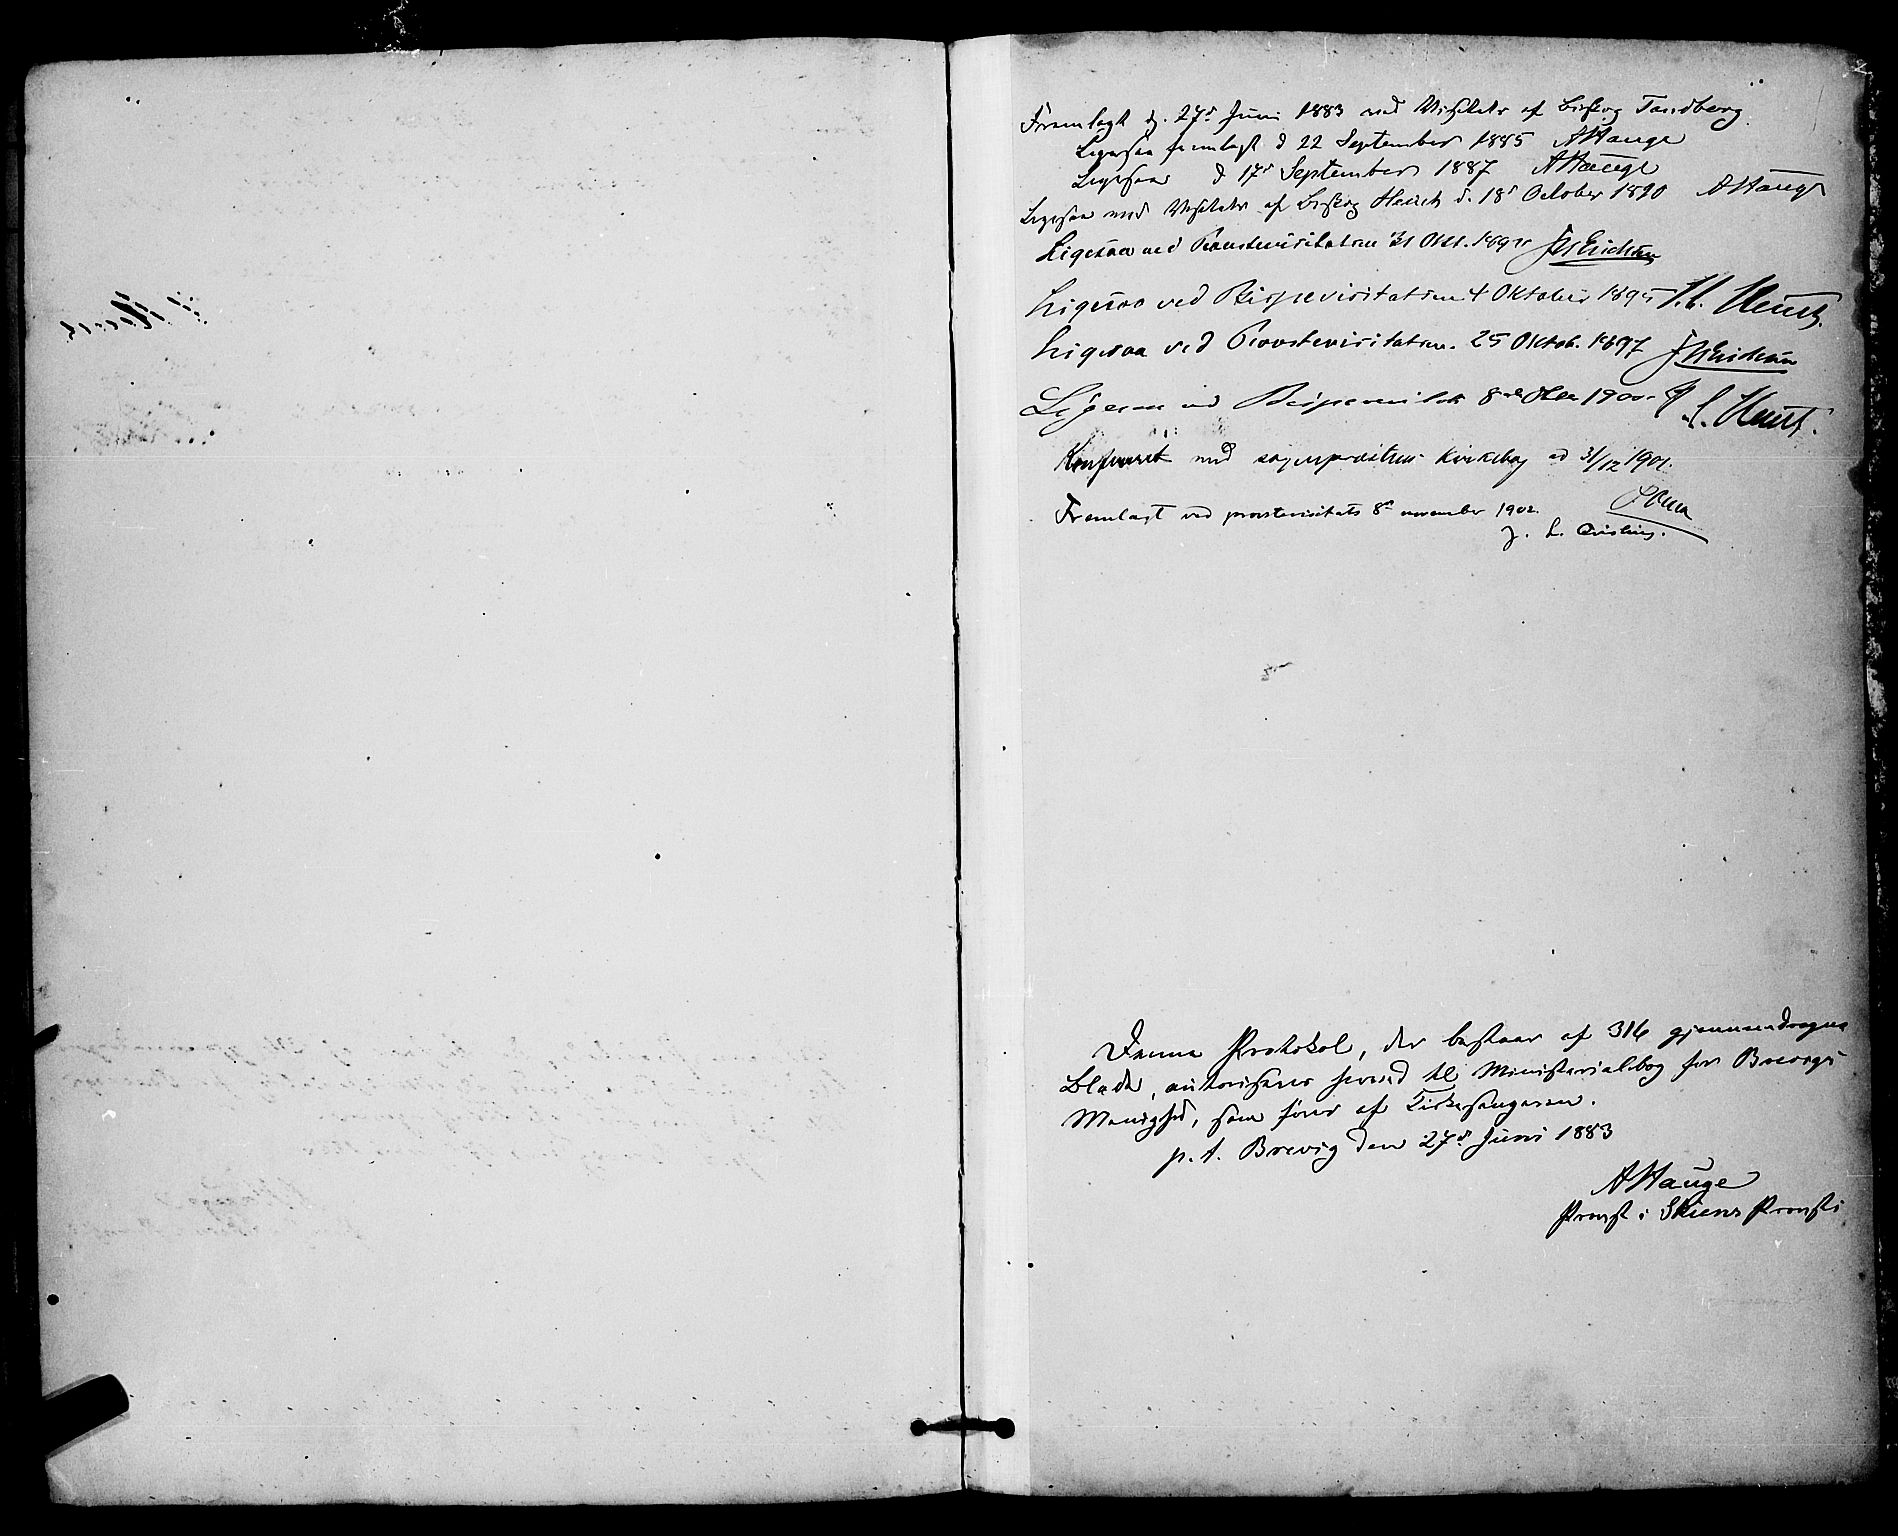 Fremlagt d. 27d Juni 1883 ved Visitats af Biskop Tandberg.
Ligesaa fremlagt d 22 September 1885 AHauge
Ligesaa d 17d September 1887 AHauge
Ligesaa ved Visitats af Biskop Heuch d. 18d October 1890 AHauge
Ligesaa ved Provstevisitatsen 31 Okt. JMErichsen
Ligesaa ved Bispevisitatsen 4 Oktober 1895 J. C. Heuch.
Ligesaa ved Provstevisitatsen. 25 Oktob. 1897 JMErichsen
Ligesaa ved Bispevisitats 8de 1900 J. C. Heuch.
Konfereret med sognepræstens kirkebog ad 31/12 1901.
Fremlagt ved provstevisitats 8de november 1902
J. L. Qvisling.
Denne Protokol, der bestaar af 316 gjennemdragne
Blade, autoriseres herved til Ministerialbog for Brevigs
Menighed, som føres af Kirkesangeren.
p. t. Brevig den 27d Juni 1883
AHauge
Provst i Skiens Provsti